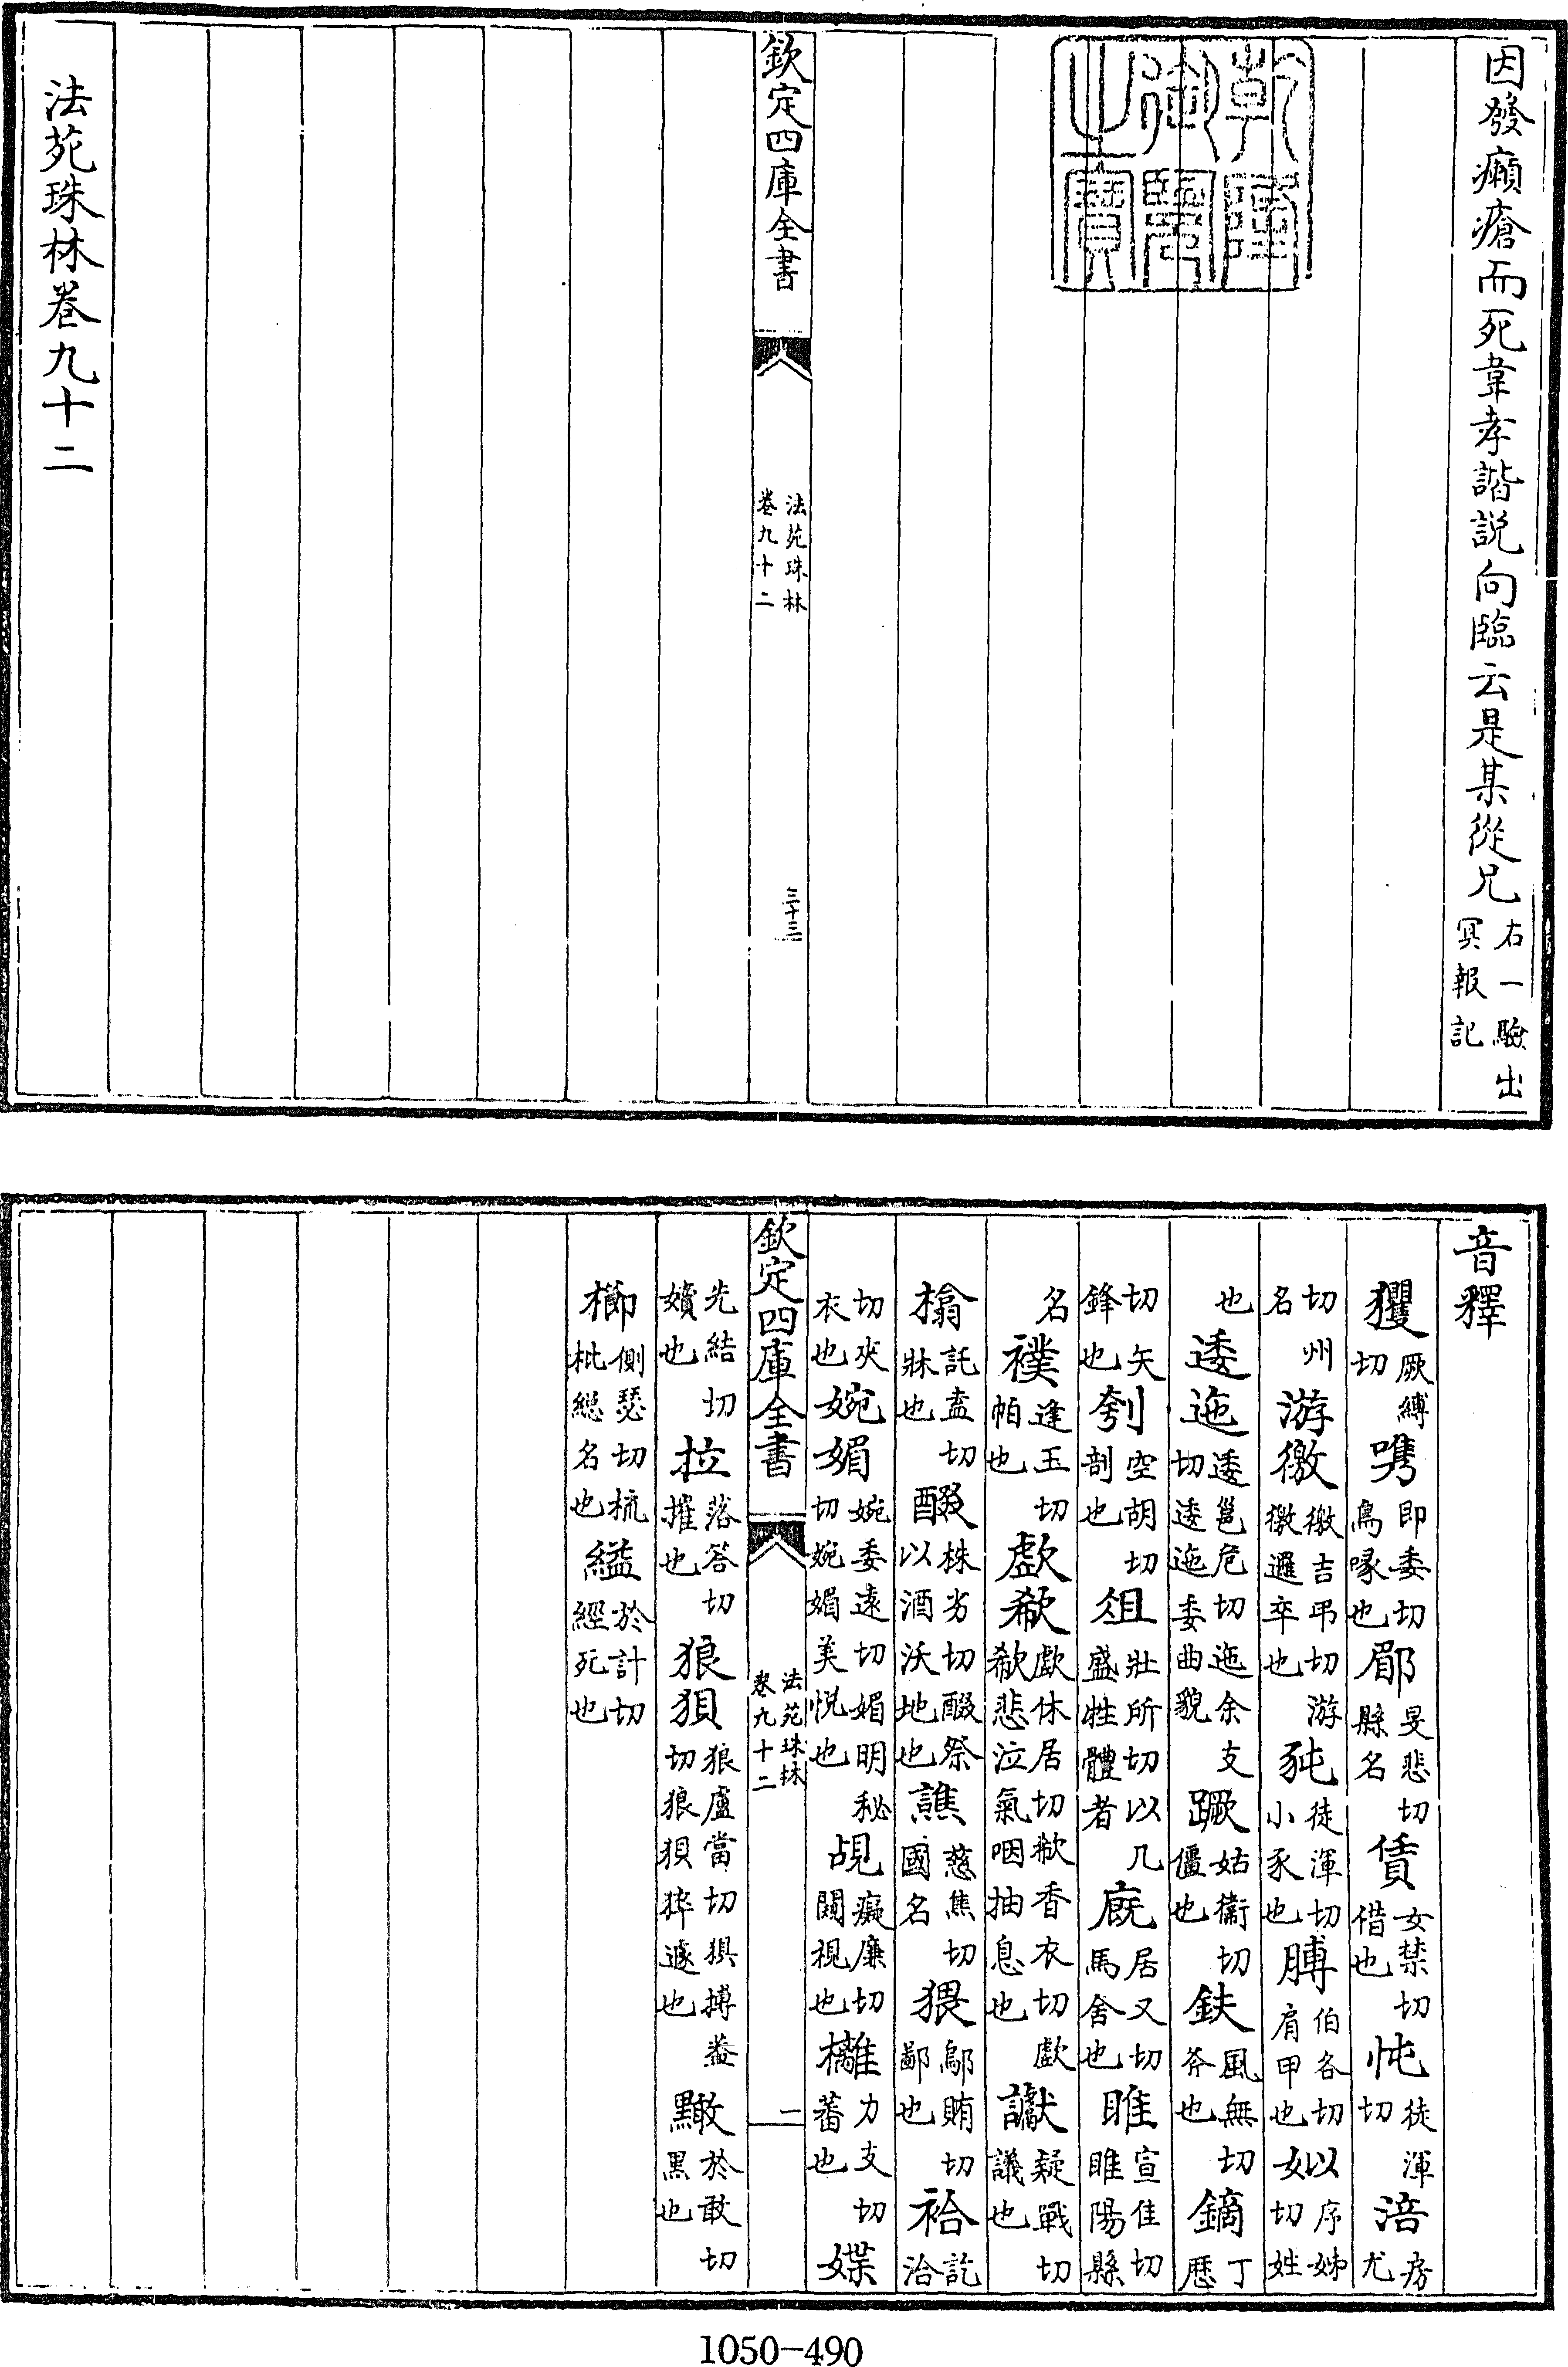 因發癩瘡而死韋孝諧説向臨云是某從兄右一驗出冥報記
乾隆御覽之寳
欽定四庫全書
法苑珠林
卷九十二
三十三
法苑珠林卷九十二
音釋
玃厥縛切㗖即委切鳥喙也郿旻悲切縣名賃女禁切借也忳徒渾切涪房尤
切州名游徼徼吉弔切游徼邏卒也豘徒渾切小豕也膊伯各切肩甲也姒以序切姊姓
也逶迤逶邕危切迤余支切逶迤委曲貌蹶姑衞切僵也鈇風無切斧也鏑丁歴
切矢鋒也刳空胡切剖也俎壯所切以几盛牲體者廐居又切馬舍也睢宣隹切睢陽縣
名襆逢玉切帕也歔欷歔休居切欷香衣切歔欷悲泣氣咽抽息也讞疑戰切議也
㯓託盍切牀也醊株劣切醊祭以酒沃地也譙慈焦切國名猥鄔賄切鄙也袷訖洽
切夾衣也婉媚婉委遠切媚明秘切婉媚美悅也覘癡廉切闚視也樆力支切蕃也媟
先結切嬻也拉落答切摧也狼狽狼盧當切狽博葢切狼狽猝遽也黬於敢切黑也
櫛側瑟切梳枇緫名也縊於計切經死也
欽定四庫全書
法苑珠林
卷九十二
一
1050-490